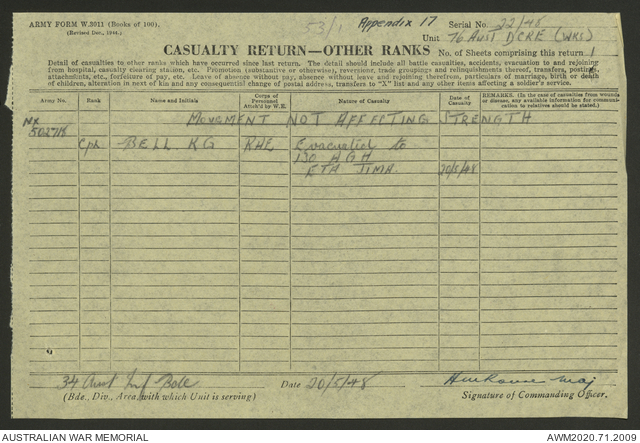 ARMY FORM W.3011 (Books of 100).
(Revised Dec., 1944.)
53/1 Appendix 17
Serial No. 22/48
Unit 76 Aust DCRE (WKS)
CASUALTY RETURN—OTHER RANKS
No. of Sheets comprising this return 1
Detail of casualties to other ranks which have occurred since last return. The detail should include all battle casualties, accidents, evacuation to and rejoining
from hospital, casualty clearing station, etc. Promotion (substantive or otherwise), reversions, trade groupings and relinquishments thereof, transfers, postings,
attachments, etc., forfeiture of pay, etc. Leave of absence without pay, absence without leave and rejoining therefrom, particulars of marriage, birth or death
of children, alteration in next of kin and any consequential change of postal address, transfers to "X" list and any other items affecting a soldier's service.
Army No. Rank Name and Initials Corps of Personnel Attch'd by W.E. Nature of Casualty Date of Casualty REMARKS. (In the case of casualties from wounds or disease, any available information for communication to relatives should be stated.)
MOVEMENT NOT AFFECTING STRENGTH
NX
502718 Cpl BELL KG RAE Evacuated to
130 AGH
ETA JIMA. 20/5/48
34 Aust Inf Bde Date 20/5/48 Maj
(Bde., Div., Area, with which Unit is serving) Signature of Commanding Officer.
AUSTRALIAN WAR MEMORIAL AWM2020.71.2009